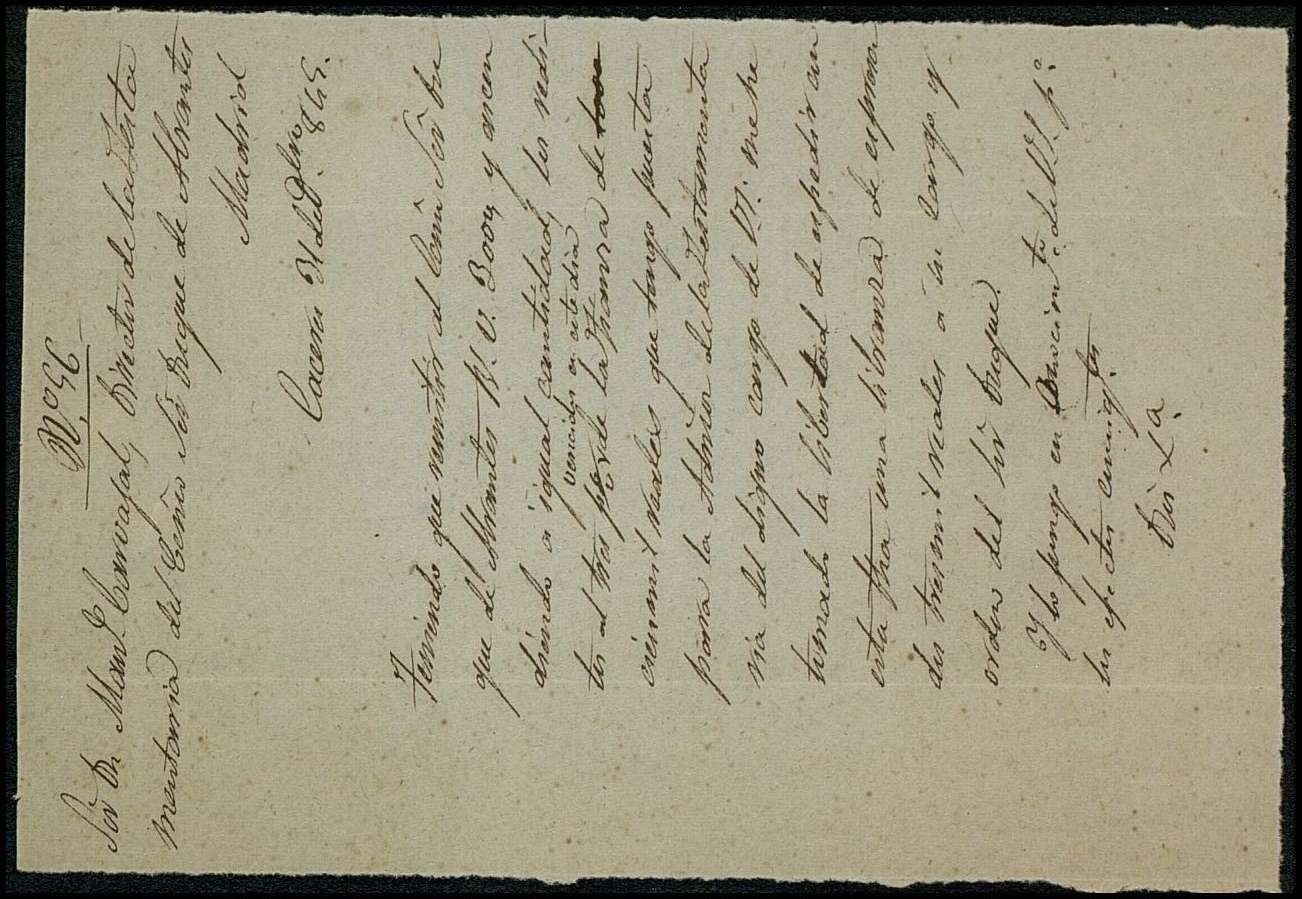 Nº 35.
Sor Dn Manl Carvajal, Director de la Testa
mentaria del Exmo Sor Duque de Abrantes
Madrid
Caceres 31 de Dbre 845.
Teniendo que remitir al Exmo Sor Du
que de Abrantes R. V. 3000, y ascen
diendo a igual cantidad, los redi-
vencidos en este dia
tos al tres p% de la fianza de
cien mil reales que tengo puesta
para la Admon de la Testamenta
ria del digno cargo de V. me he
tomado la libertad de expedir en
esta fha una libranza de espresa
dos tres mil reales a su cargo y
orden del Sor Duque.
Y lo pongo en conocimto de V. pa
los efectos consigtes
Dios &a